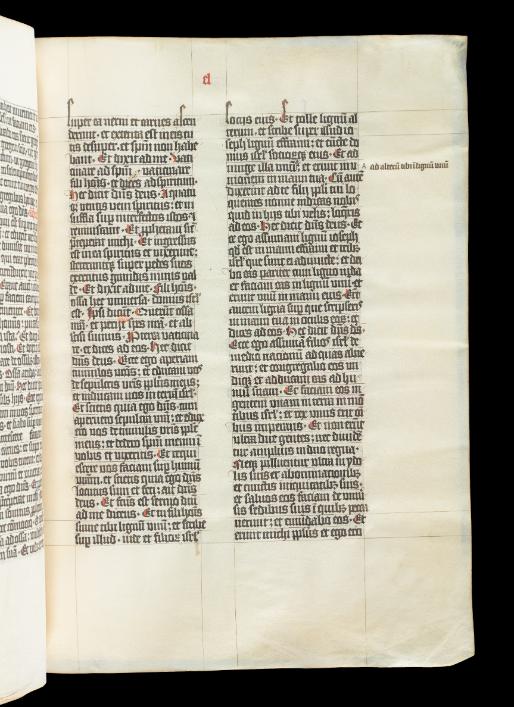 super ea nervi et carnes ascen
derunt · et extenta est in eis cu
tis desuper · et spm non habe
bant · Et dixit ad me · Vati
cinare ad spm · vaticinare
fili hois · et dices ad spiritum ·
Hec dicit dns deus · A quatu
or ventis veni spiritus · et in
suffla super interfectos istos · et
reviviscant · Et prophetavi sic
preceperat michi · Et ingressus
est in ea spiritus et vixerunt ·
steteruntque super pedes suos
exercitus grandis nimis val
de · Et dixit ad me · Fili hois
ossa hec universa · domus isrl
est · Ipsi dicunt · Aruerunt ossa
nra · et periit spes nra · et ab
scisi sumus · Propterea vaticina
re · et dices ad eos · Hec dicit
dns deus · Ecce ego aperiam
tumulos vros · et educam vos
de sepulcris vris ppls meus ·
et inducam vos in terram isrl ·
Et scietis quia ego dns · cum
aperuero sepulcra vra · et edux
ero vos de tumulis vris ppls
meus · et dedero spm meum i
vobis et vixeritis · Et requi
escere vos faciam super humum
vram · et scietis quia ego dns
locutus sum et feci · ait dns
deus · Et factus est sermo dni
ad me dicens · Et tu fili hois
sume tibi lignum unu · et scribe
super illud · iude et filiorum isrl
sociis eius · Et tolle lignum al
terum · et scribe super illud io
seph lignum effraim · et cuncte do
mus isrl sociorumque eius · Et ad
iunge illa unum · et erunt in u
nionem in manu tua · Cum autem
dixerint ad te filii ppli tui lo
quentes · nonne indicas nobis
quid in hiis tibi velis · loqueris
ad eos · Hec dicit dns deus ·
Ecce ego assumam lignum ioseph
qd est in manu effraim et tribus
isrl que sunt ei adiuncte · et da
bo eas pariter cum ligno iuda
et faciam eas in lignum unum · et
erunt unum in manu eius · Erunt
autem ligna super que scripseris
in manu tua in oculis eorum · et
dices ad eos · Hec dicit dns ds ·
Ecce ego assumam filios isrl de
medio nationum ad quas abie
runt · et congregabo eos un
dique et adducam eos ad hu
mum suam · Et faciam eos in
gentem unam in terra in mon
tibus isrl · et rex unus erit om
nibus imperans · Et non erunt
ultra due gentes · nec dividen
tur amplius in duo regna ·
Neque polluentur ultra in ydo
lis suis et abominationibus
et cunctis iniquitatibus suis ·
et salvos eos faciam de univ
sis sedibus suis i quibus pecca
verunt · et emundabo eos · Et
erunt michi ppls et ego ero
ad alterum tibi lignum unum